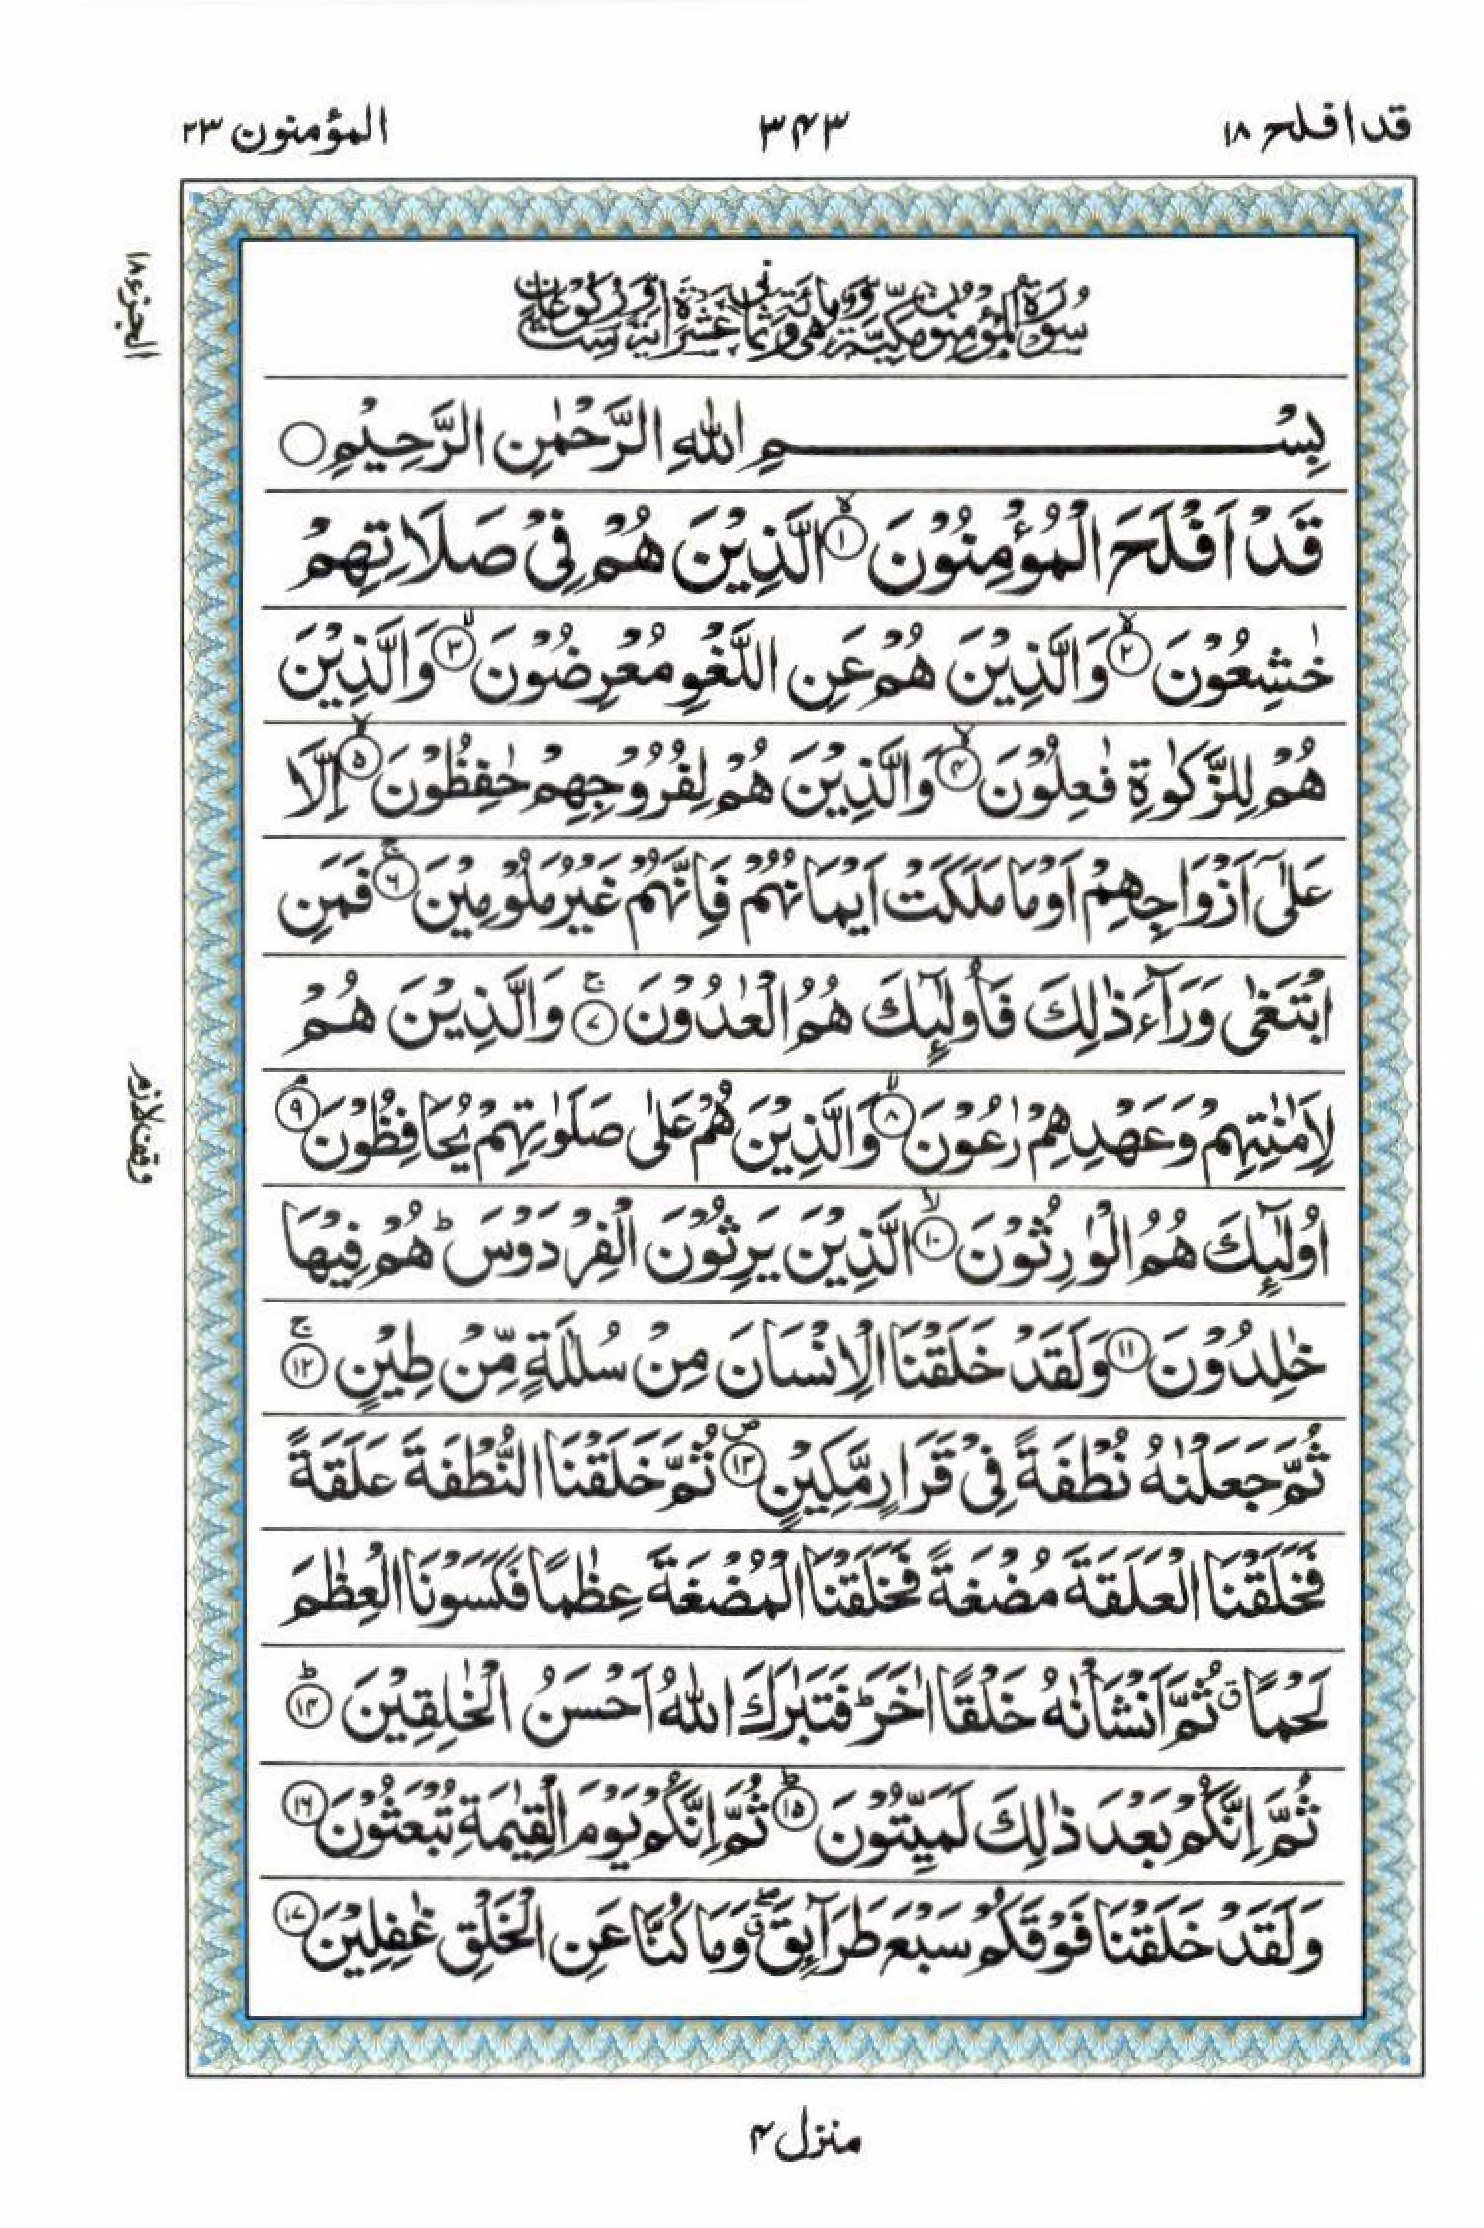 قد افلح ١٨
٣٤٣
المؤمنون ٢٣
الجزء ١٨
سُوْرَةُ الْمُؤْمِنُوْنَ مَكِّيَّةٌ وَّهِيَ مِائَةٌ وَّثَمَانِيْ عَشْرَةَ اٰيَةً وَّ سِتُّ رُكُوْعَاتٍ
بِسْمِ اللّٰهِ الرَّحْمٰنِ الرَّحِيْمِ ○
قَدْ اَفْلَحَ الْمُؤْمِنُوْنَ ۙ‏﴿۱﴾ الَّذِيْنَ هُمْ فِيْ صَلَاتِهِمْ
خٰشِعُوْنَ ۙ‏﴿۲﴾ وَالَّذِيْنَ هُمْ عَنِ اللَّغْوِ مُعْرِضُوْنَ ۙ‏﴿۳﴾ وَالَّذِيْنَ
هُمْ لِلزَّكٰوةِ فٰعِلُوْنَ ۙ‏﴿۴﴾ وَالَّذِيْنَ هُمْ لِفُرُوْجِهِمْ حٰفِظُوْنَ ۙ‏﴿۵﴾ اِلَّا
عَلٰٓى اَزْوَاجِهِمْ اَوْ مَا مَلَكَتْ اَيْمَانُهُمْ فَاِنَّهُمْ غَيْرُ مَلُوْمِيْنَ ۚ‏﴿۶﴾ فَمَنِ
ابْتَغٰى وَرَآءَ ذٰلِكَ فَاُولٰٓئِكَ هُمُ الْعٰدُوْنَ ۚ‏﴿۷﴾ وَالَّذِيْنَ هُمْ
لِاَمٰنٰتِهِمْ وَعَهْدِهِمْ رٰعُوْنَ ۙ‏﴿۸﴾ وَالَّذِيْنَ هُمْ عَلٰى صَلَوٰتِهِمْ يُحَافِظُوْنَ ۘ‏﴿۹﴾
وقف لازم
اُولٰٓئِكَ هُمُ الْوٰرِثُوْنَ ۙ‏﴿۱۰﴾ الَّذِيْنَ يَرِثُوْنَ الْفِرْدَوْسَ ؕ هُمْ فِيْهَا
خٰلِدُوْنَ ‏﴿۱۱﴾ وَلَقَدْ خَلَقْنَا الْاِنْسَانَ مِنْ سُلٰلَةٍ مِّنْ طِيْنٍ ۚ‏﴿۱۲﴾
ثُمَّ جَعَلْنٰهُ نُطْفَةً فِيْ قَرَارٍ مَّكِيْنٍ ‏﴿۱۳﴾ ص ثُمَّ خَلَقْنَا النُّطْفَةَ عَلَقَةً
فَخَلَقْنَا الْعَلَقَةَ مُضْغَةً فَخَلَقْنَا الْمُضْغَةَ عِظٰمًا فَكَسَوْنَا الْعِظٰمَ
لَحْمًا ق ثُمَّ اَنْشَاْنٰهُ خَلْقًا اٰخَرَ ؕ فَتَبٰرَكَ اللّٰهُ اَحْسَنُ الْخٰلِقِيْنَ ؕ‏﴿۱۴﴾
ثُمَّ اِنَّكُمْ بَعْدَ ذٰلِكَ لَمَيِّتُوْنَ ؕ‏﴿۱۵﴾ ثُمَّ اِنَّكُمْ يَوْمَ الْقِيٰمَةِ تُبْعَثُوْنَ ‏﴿۱۶﴾
وَلَقَدْ خَلَقْنَا فَوْقَكُمْ سَبْعَ طَرَآئِقَ ۖق وَمَا كُنَّا عَنِ الْخَلْقِ غٰفِلِيْنَ ‏﴿۱۷﴾
منزل ۴